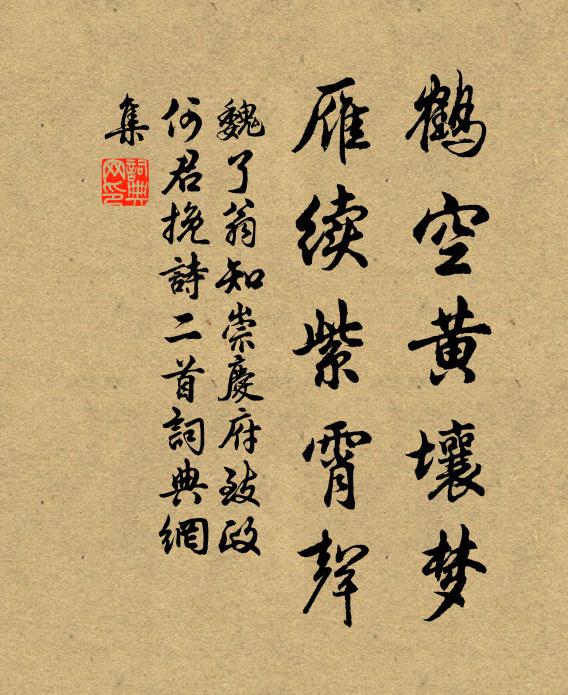 鹤空黄壤梦
雁续紫霄聲
魏了翁知崇慶府致政
何君挽詩二首詞典網
集
詞典
网印